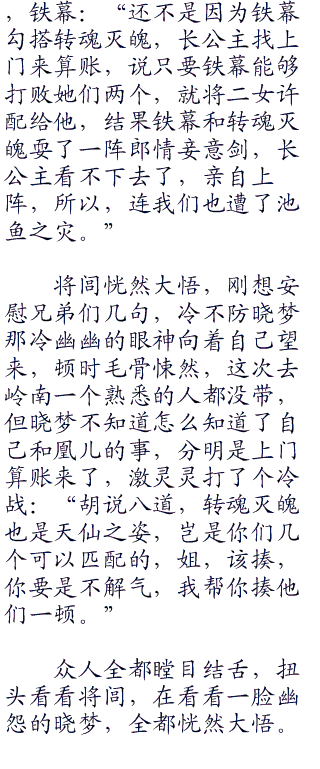 ，铁幕：“还不是因为铁幕
勾搭转魂灭魄，长公主找上
门来算账，说只要铁幕能够
打败她们两个，就将二女许
配给他，结果铁幕和转魂灭
魄耍了一阵郎情妾意剑，长
公主看不下去了，亲自上
阵，所以，连我们也遭了池
鱼之灾。”
将闾恍然大悟，刚想安
慰兄弟们几句，冷不防晓梦
那冷幽幽的眼神向着自己望
来，顿时毛骨悚然，这次去
岭南一个熟悉的人都没带，
但晓梦不知道怎么知道了自
己和凰儿的事，分明是上门
算账来了，激灵灵打了个冷
战：“胡说八道，转魂灭魄
也是天仙之姿，岂是你们几
个可以匹配的，姐，该揍，
你要是不解气，我帮你揍他
们一顿。”
众人全都瞠目结舌，扭
头看看将闾，在看看一脸幽
怨的晓梦，全都恍然大悟。